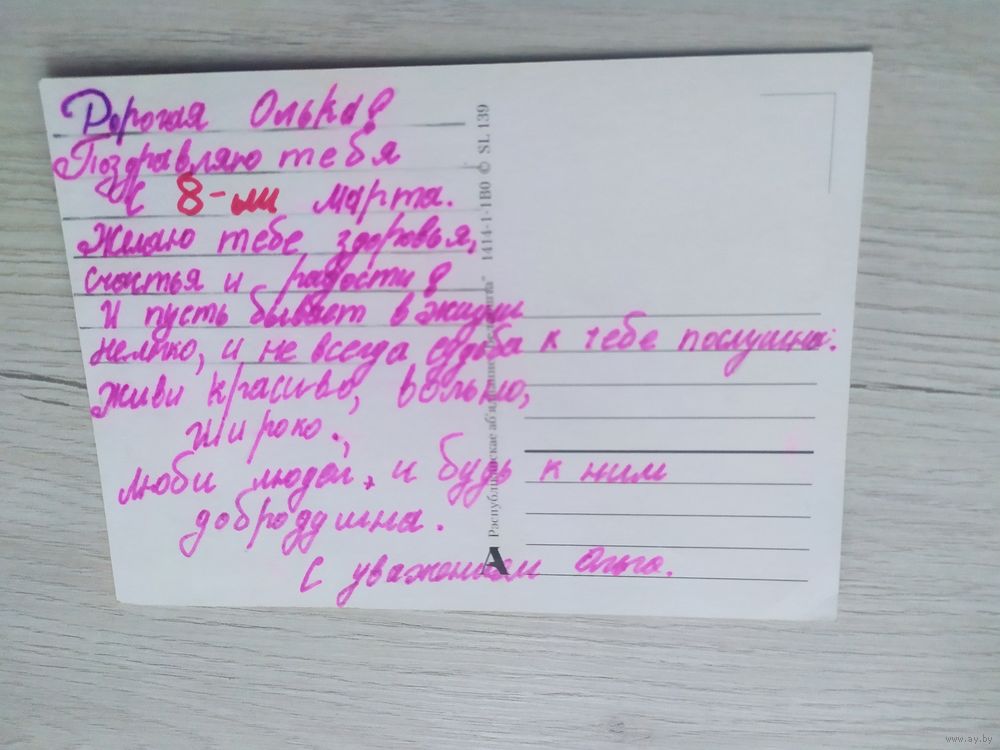 Дорогая Олька!
Поздравляю тебя
с 8-ми марта.
Желаю тебе здоровья,
счастья и радости!
И пусть бывает в жизни
нелегко, и не всегда судьба к тебе послушна:
живи красиво, вольно,
широко.
Люби людей, и будь к ним
доброддушна.
С уважением Ольга.
А Рэспубліканскае аб'яднанне "Белпошта" 1414-1-1В0 © SL 139
www.ay.by